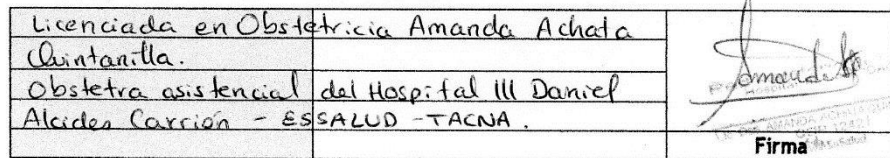 Licenciada en Obstetricia Amanda Achata
Quintanilla.
Obstetra asistencial del Hospital III Daniel
Alcides Carrión - ESSALUD - TACNA.
Firma